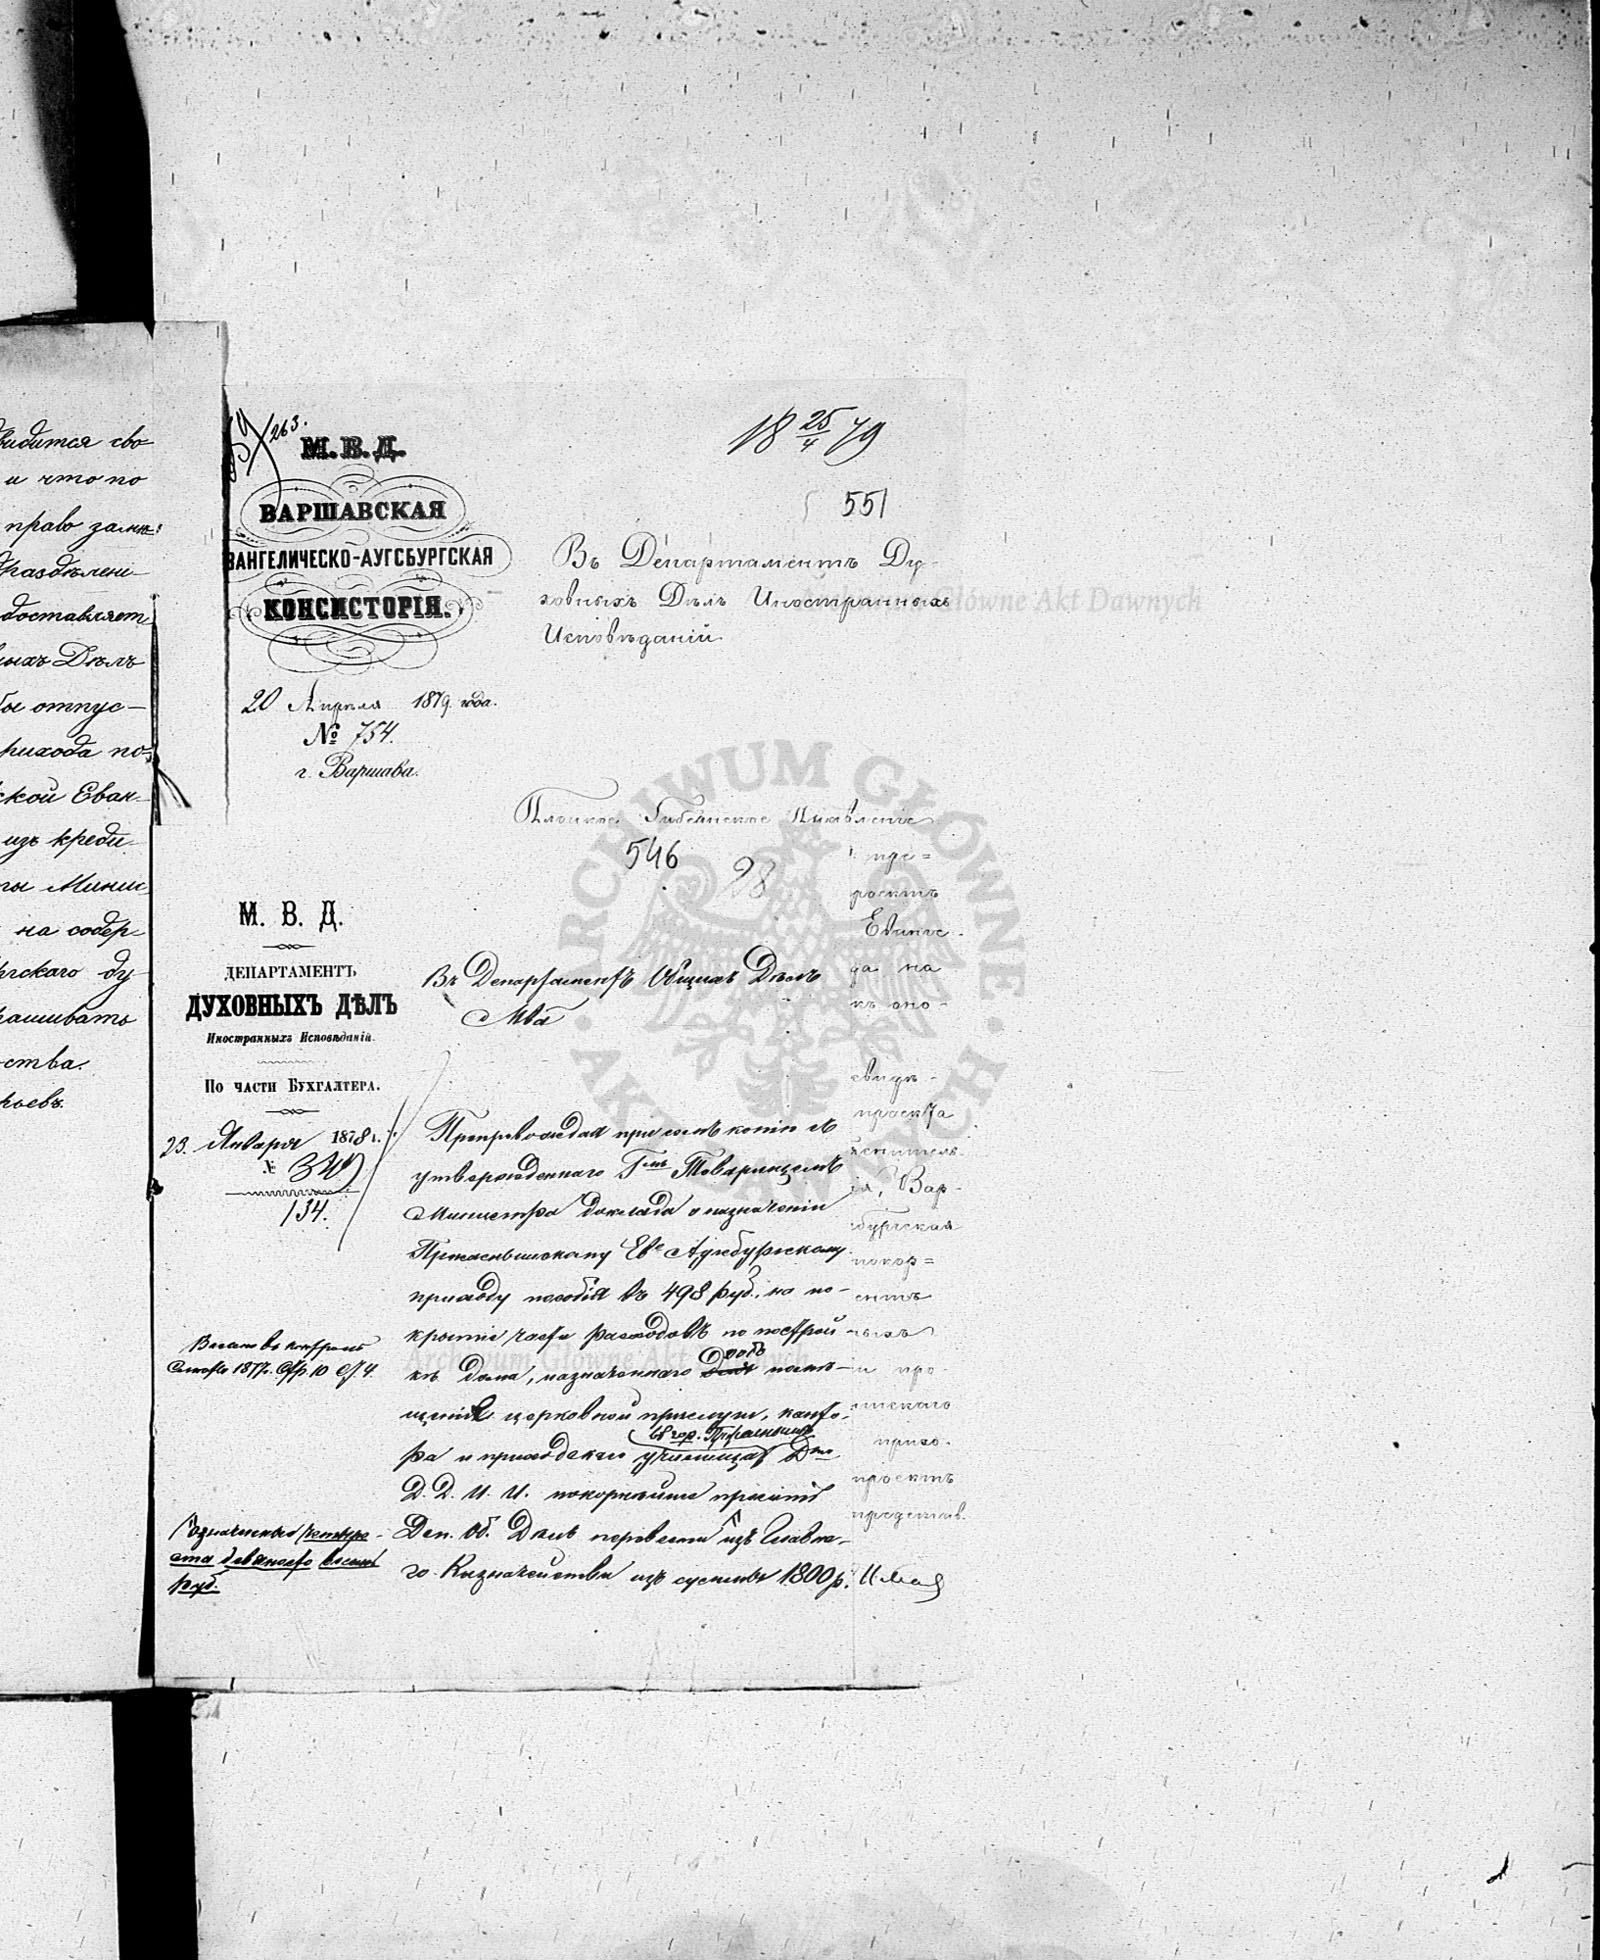 видится сво-
и что по
право заме-
Праздѣлени-
доставляет
ныхъ Дѣлъ
бы отпус-
рихода по-
ской Еван-
изъ креди-
ты Минис-
на содер-
ргскаго ду-
рашивать
ства.
263.
М. В. Д.
ВАРШАВСКАЯ
ВАНГЕЛИЧЕСКО-АУГСБУРГСКАЯ
КОНСИСТОРІЯ.
20 Апрѣля 1879 года.
№ 754.
г. Варшава.
18 25/4 79
551
Въ Департаментъ Ду-
ховныхъ Дѣлъ Иностранныхъ
Исповѣданій
Archiwum Główne Akt Dawnych
Плоцкое Губернское Правленіе
546
28
ARCHIWUM GŁÓWNE AKT DAWNYCH
М. В. Д.
ДЕПАРТАМЕНТЪ
ДУХОВНЫХЪ ДѢЛЪ
Иностранныхъ Исповѣданій.
По части Бухгалтера.
23 Января 1878 г.
№ 347
134.
Въ Департаментъ Общихъ Дѣлъ
Мва
Препровождая при семъ копію съ
утвержденнаго Г-мъ Товарищемъ
Министра доклада о назначеніи
Прасньшскому Ев. Аугсбургскому
приходу пособія въ 498 руб., на по-
крытіе части расходовъ по построй-
кѣ дома, назначеннаго подъ помѣ-
щеніе церковной прислуги, канто-
ра и приходскаго училища въ гор. Праснышѣ Д-тъ
Д. Д. И. И. покорнѣйше проситъ
Деп. Об. Дѣлъ перевести изъ Главна-
го Казначейства изъ суммы 1800 р.
смѣты 1877 г. Стр. 10 ст 4.
Означенные четыре-
ста девяносто восемь
руб.
пре-
роситъ
да на
къ оно-
свидѣ-
проекта
ія, Вар-
бургская
покор-
ныхъ
и про
прихо-
проситъ
представ.
Archiwum Główne Akt Dawnych